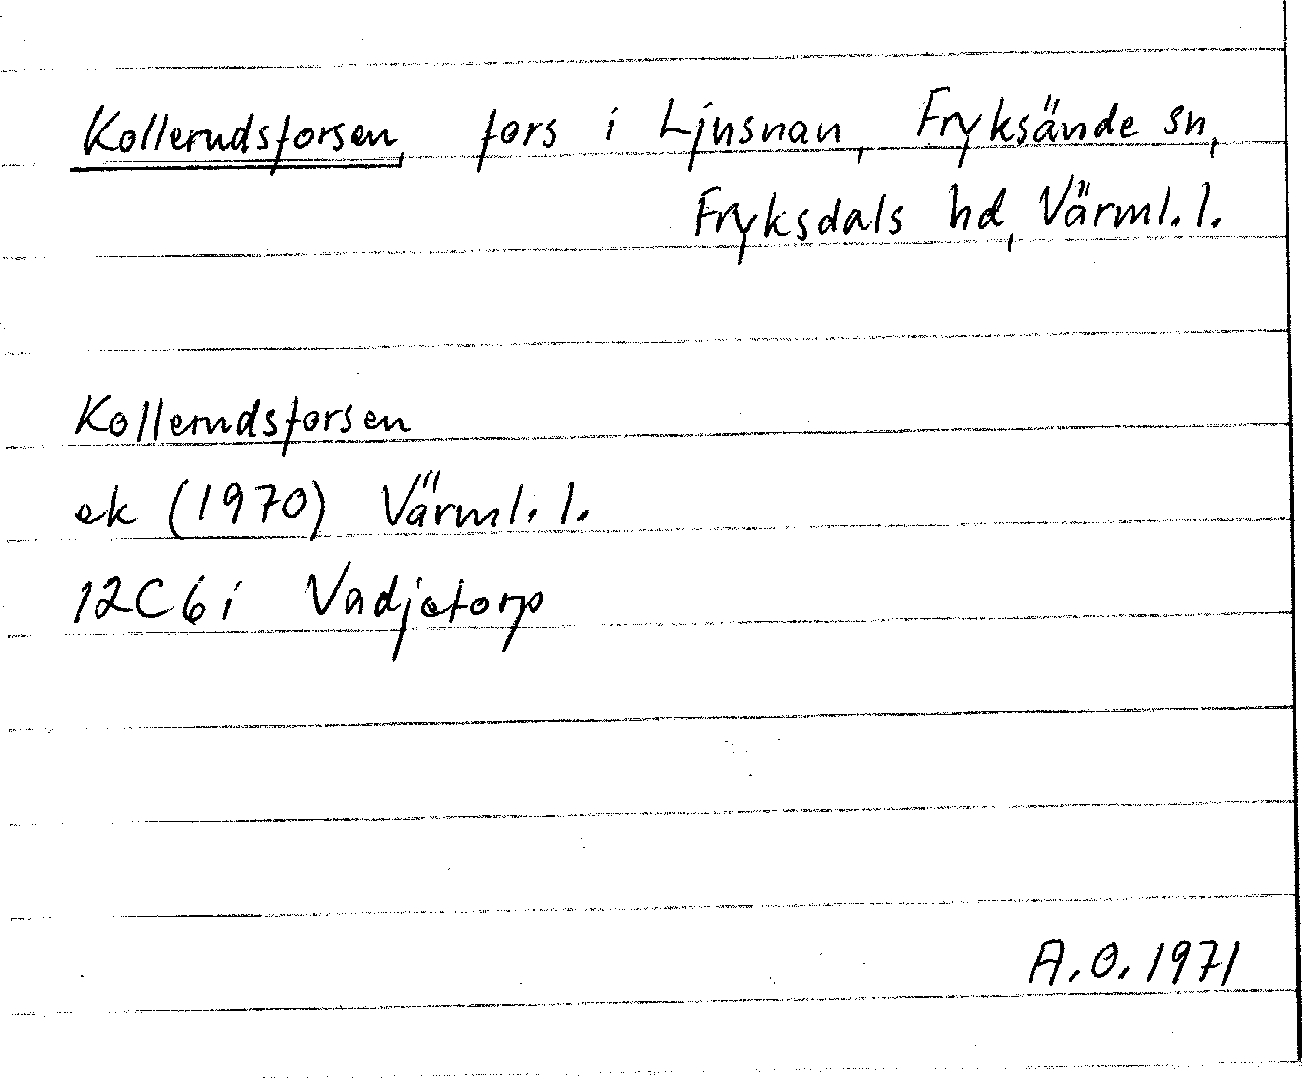 Kollerudsforsen, fors i Ljusnan, Fryksände sn,
Fryksdals hd, Värml. l.
Kollerudsforsen
ek (1970) Värml. l.
12C6i Vadjetorp
A.O. 1971